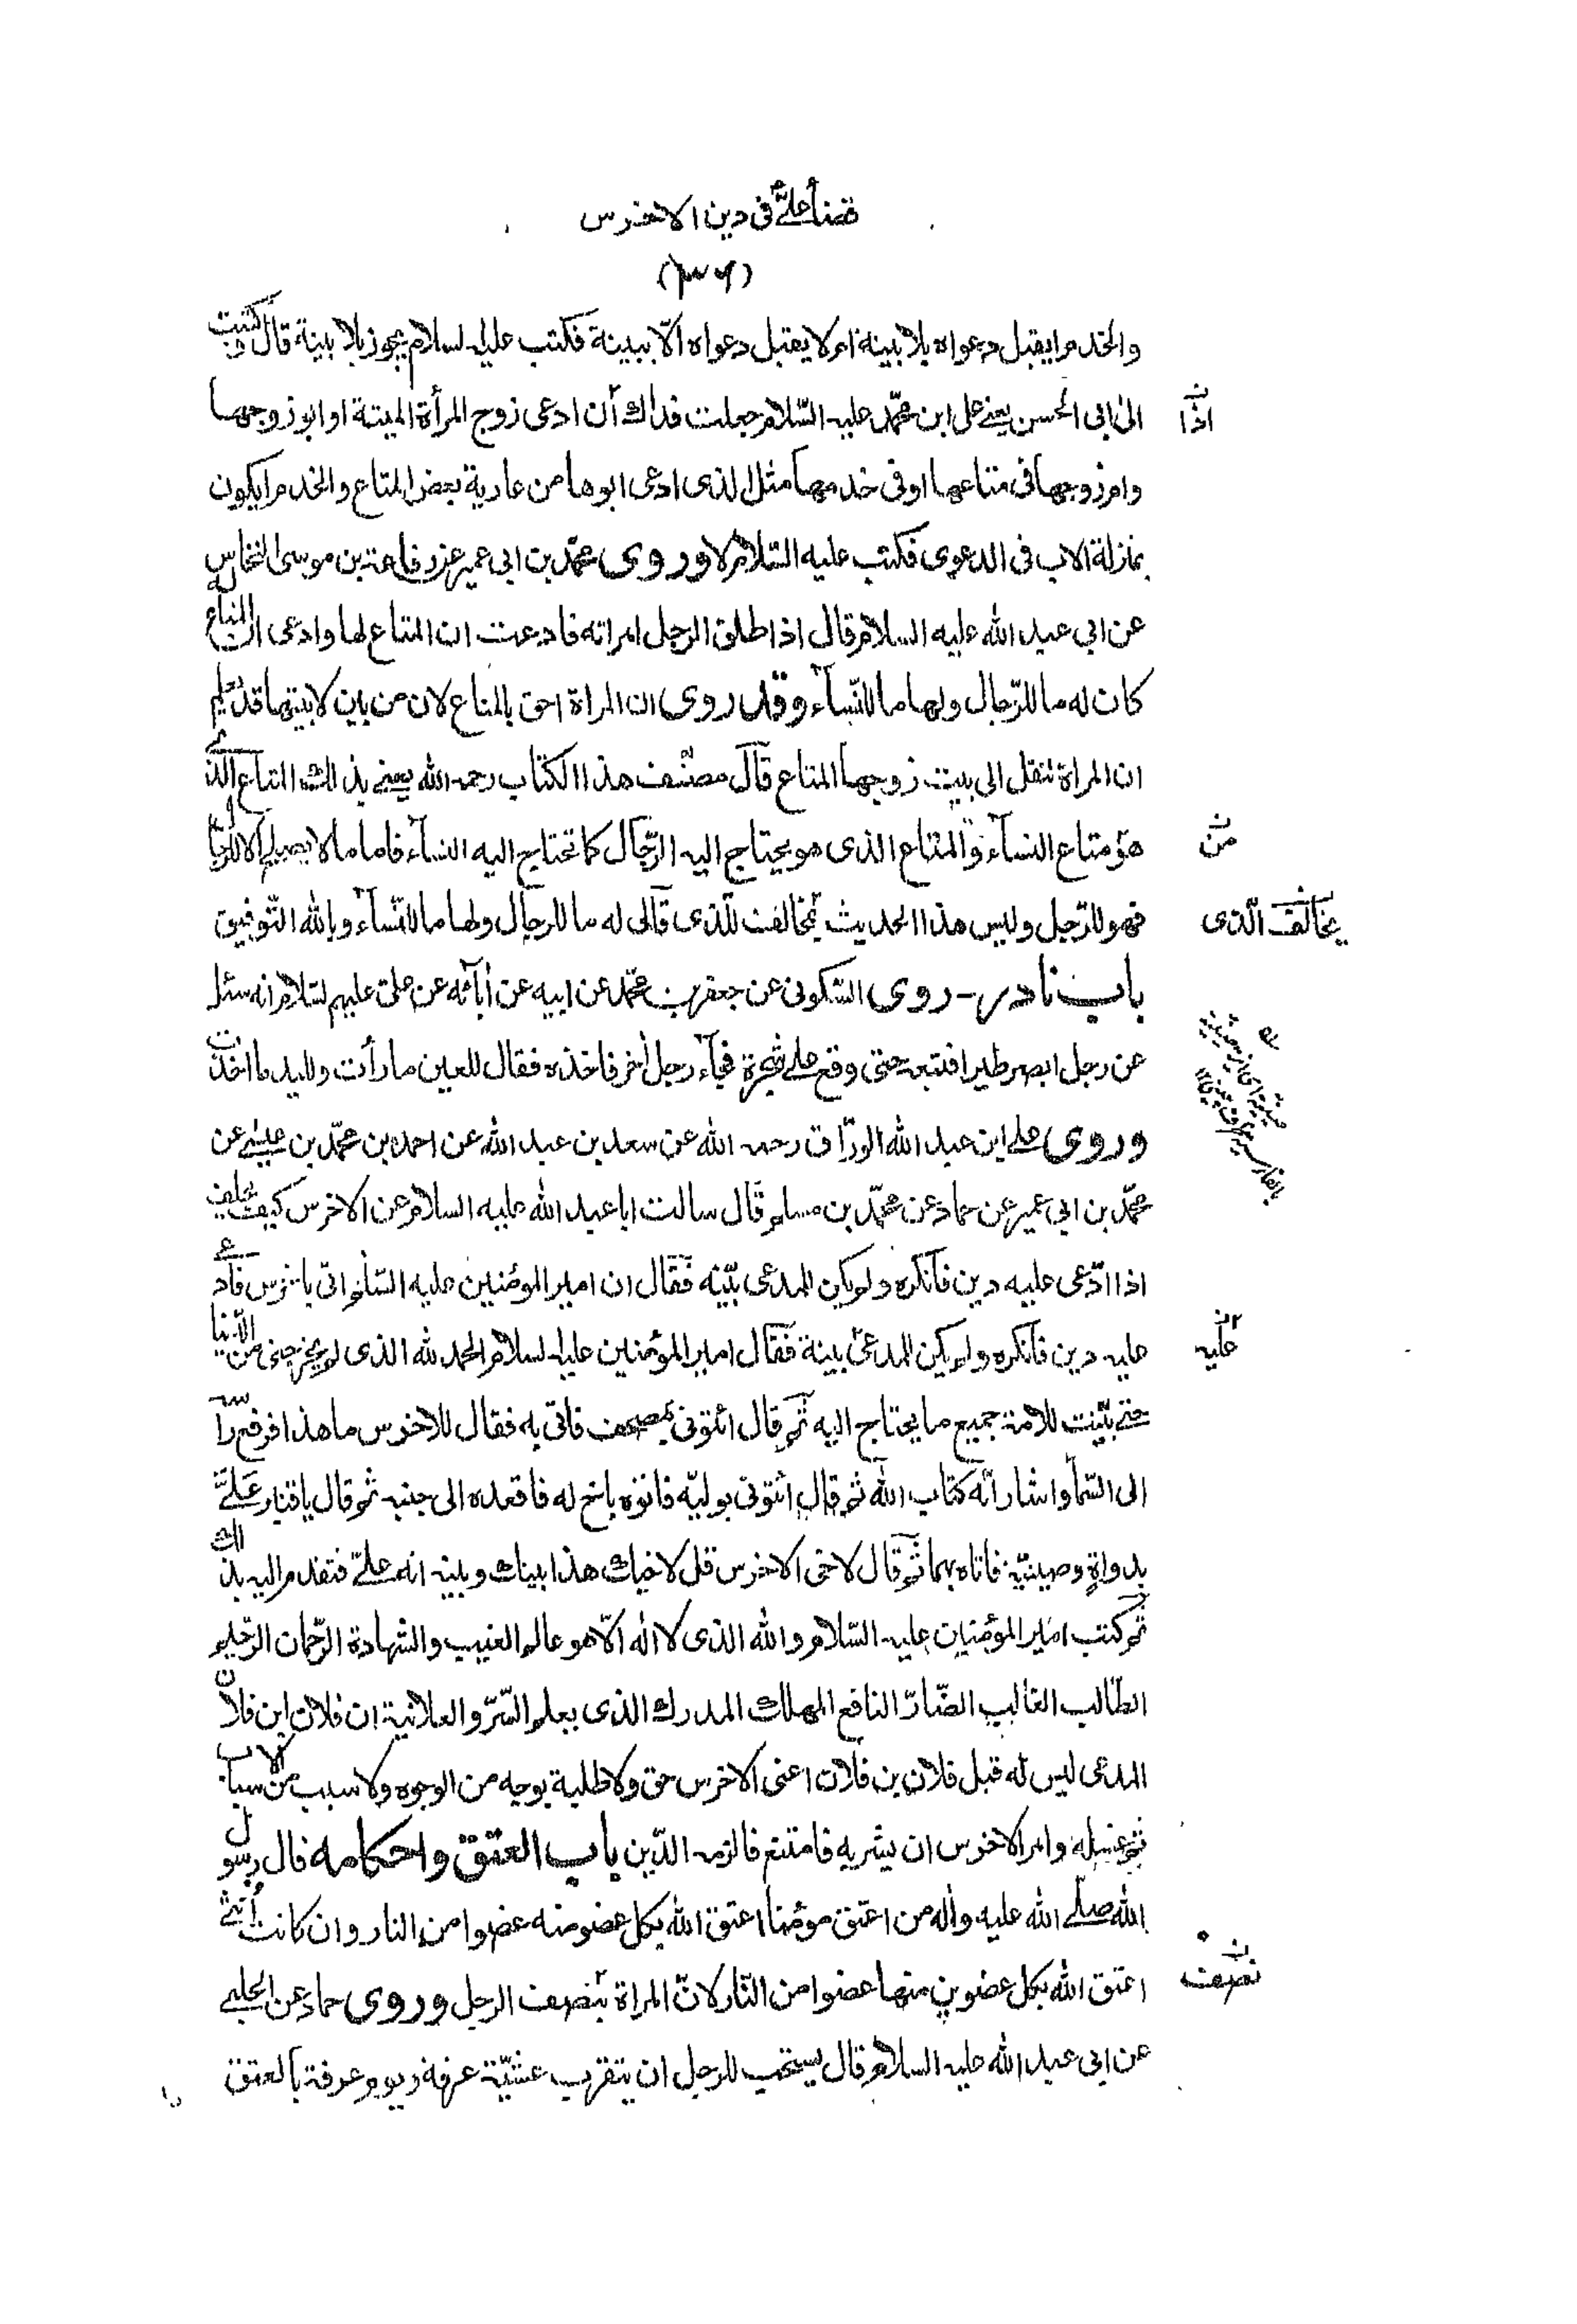 قضأ علیّ فی دین الاخرس
(۳۶)
والخدم ایقبل دعواه بلا بینة ام لا یقبل دعواه الّا ببینة فکتب علیه السلام یجوز بلا بینة قال و کتبت
الیٰ ابی الحسن یعنے علی ابن محمّد علیه السّلام جعلت فداك ان ادعی زوج المرأة المیتة او ابو زوجها
اذا ن
وام زوجها فی متاعها او فی خدمها مثل الذی ادعی ابوها من عاریة بعض المتاع والخدم ایکون
بمنزلة الاب فی الدعوی فکتب علیه السّلام لا وروی محمّد بن ابی عمیر عن رفاعة بن موسی النخاس
عن ابی عبد الله علیه السلام قال اذا طلق الرجل امراته فادعت ان المتاع لها وادعی ان المتاع له
کان له ما للرّجال ولها ما للنّسآء وقد روی ان المراة احق بالمتاع لان من بین لابیتها قد یعلم
ان المراة تنقل الی بیت زوجها المتاع قال مصنّف هذا الکتاب رحمه الله یعنے بذلك المتاع الذی
هو متاع النسآء والمتاع الذی هو یحتاج الیه الرّجال کما تحتاج الیه النسآء فاما ما لا یصلح الا للرجال
من ن
فهو للرّجل ولیس هذا الحدیث بمخالف للّذی قال له ما للرجال ولها ما للنّسآء وبالله التّوفیق
یخالف الّذی
باب نادر - روی السّکونی عن جعفر بن محمّد عن ابیه عن اٰبائه عن علی علیهم السّلام انه سئل
عن رجل ابصر طیرا فتبعه حتی وقع علے شجرة فجآء رجل اٰخر فاخذه فقال للعین ما رأت وللید ما اخذت
وروی علے ابن عبد الله الورّاق رحمه الله عن سعد بن عبد الله عن احمد بن محمّد بن عیسٰے عن
محمّد بن ابی عمیر عن حماد عن محمّد بن مسلم قال سالت ابا عبد الله علیه السلام عن الاخرس کیف یحلف
اذا ادّعی علیه دین فانکره ولم یکن للمدعی بیّنه فقال ان امیر المومنین علیه السّلم اتی باخرس فادعی
علیه دین فانکره ولم یکن للمدعی بینة فقال امیر المؤمنین علیه السلام الحمد لله الذی لم یخرجنی من الدّنیا
علیه ن
حتے بیّنت للامة جمیع ما یحتاج الیه ثم قال ائتونی بمصحف فاتی به فقال للاخرس ما هذا فرفع راسه
الی السّمأ واشار انّه کتاب الله ثم قال ائتونی بولیّه فاتوه باخ له فاقعده الی جنبه ثم قال یا قنبر عَلَیَّ
بدواةٍ وصینیّة فاتاه بهما ثم قال لاخی الاخرس قل لاخیك هذا بینك وبینه انه علیّ فتقدم الیه بذلك
ثم کتب امیر المؤمنین علیه السّلام والله الذی لا اله الّا هو عالم الغیب والشهادة الرّحمان الرّحیم
الطّالب الغالب الضّارّ النافع المهلك المدرك الذی یعلم السّرّ والعلانیة ان فلان ابن فلان
المدعی لیس له قبل فلان بن فلان اعنی الاخرس حق ولا طلبة بوجه من الوجوه ولا سبب من الاسباب
ثم غسله وامر الاخرس ان یشربه فامتنع فالزمه الدّین باب العتق واحکامه قال رسول
الله صلّے الله علیه واٰله من اعتق مؤمنا اعتق الله بکل عضو منه عضوا من النار وان کانت اُنثیٰ
اعتق الله بکل عضوین منها عضوا من النّار لانّ المراة بنصف الرجل وروی حماد عن الحلبے
نصف ن
عن ابی عبد الله علیه السلام قال یستحب للرجل ان یتقرب عشیّة عرفه ویوم عرفة بالعتق